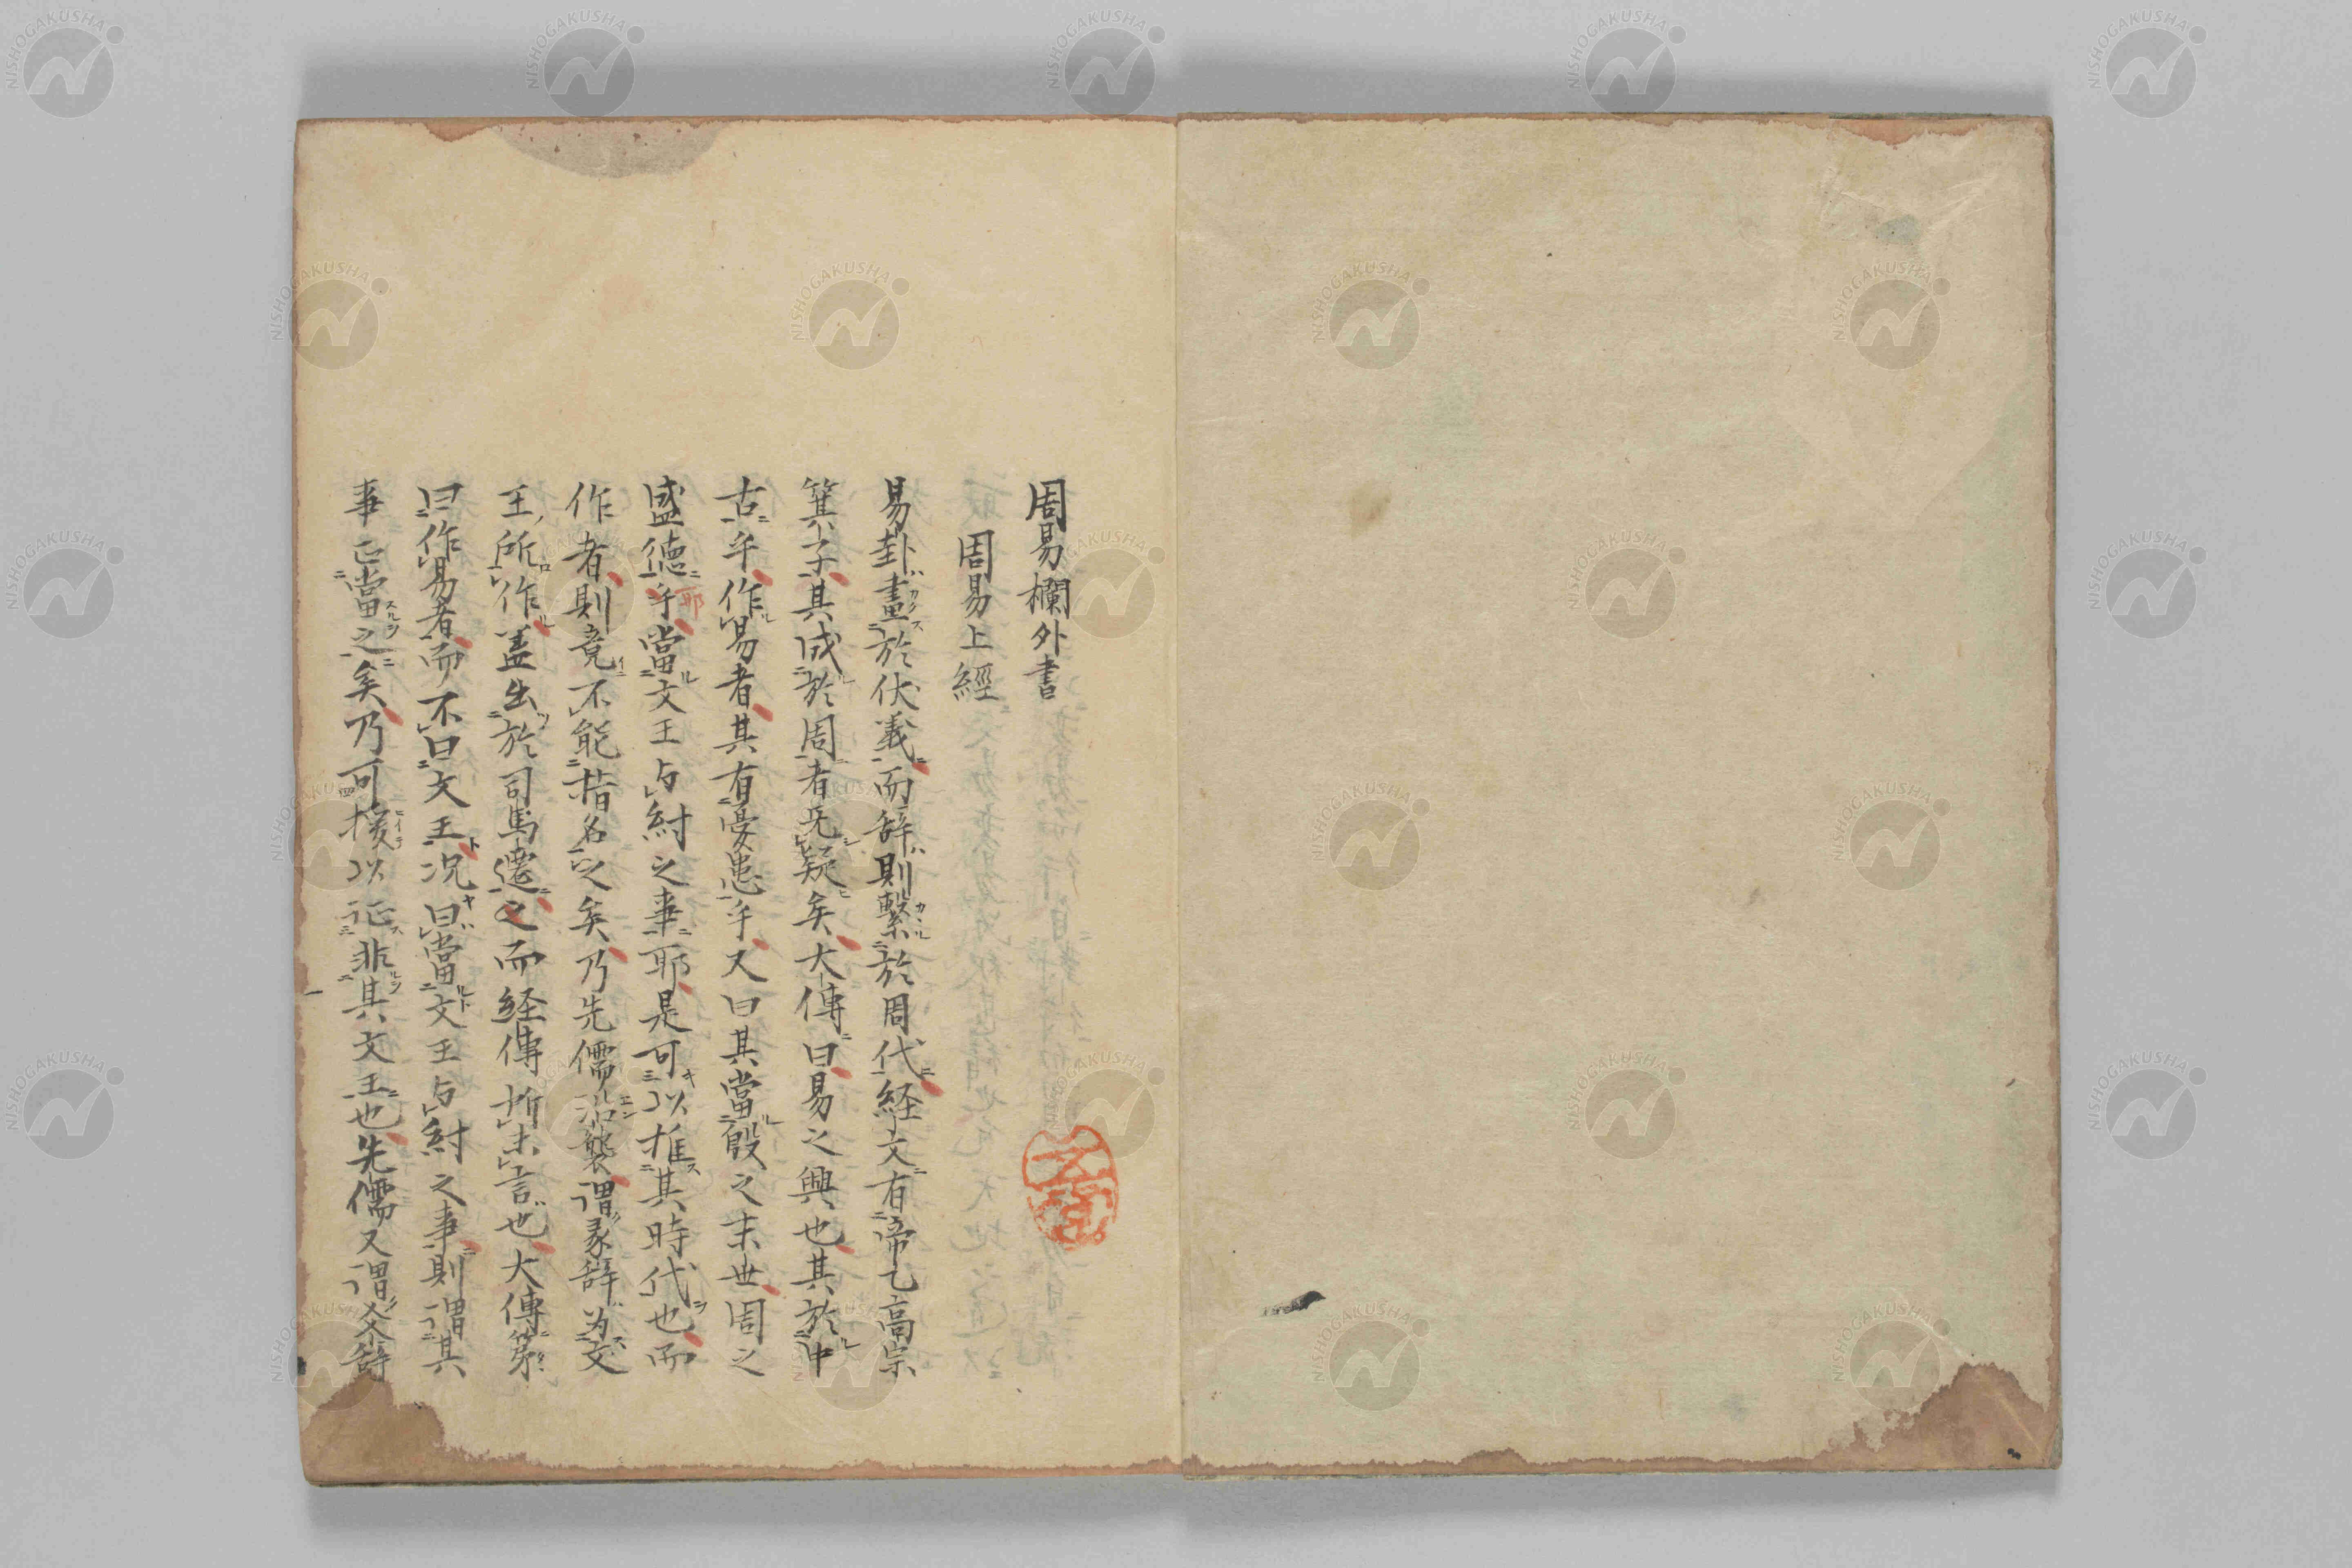 周易欄外書
周易上經
易卦畫於伏羲而辞則繫於周代経文有帝乙高宗
箕子其成於周者無疑矣大傳曰易之興也其於中
古乎作易者其有憂患乎又曰其當殷之末世周之
盛德乎當文王与紂之事耶是可以推其時代也而
作者則竟不能指名之矣乃先儒沿襲謂彖辞為文
王所作盖出於司馬遷之而経傳所未言也大傳第
曰作易者而不曰文王况曰當文王与紂之事則謂其
事正當之矣乃可援以証非其文王也先儒又謂爻辞
NISHOGAKUSHA